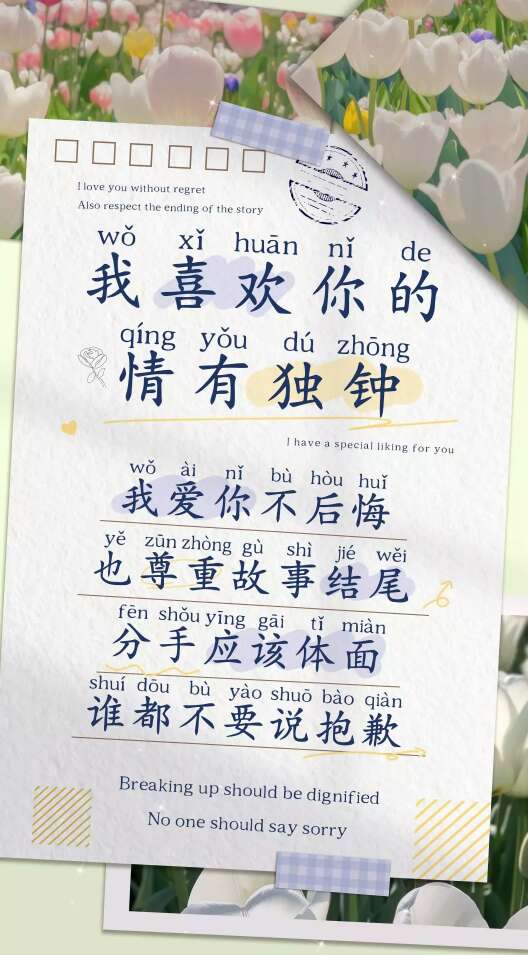 I love you without regret
Also respect the ending of the story
wǒ xǐ huān nǐ de
我喜欢你的
qíng yǒu dú zhōng
情有独钟
I have a special liking for you
wǒ ài nǐ bù hòu huǐ
我爱你不后悔
yě zūn zhòng gù shì jié wěi
也尊重故事结尾
fēn shǒu yīng gāi tǐ miàn
分手应该体面
shuí dōu bù yào shuō bào qiàn
谁都不要说抱歉
Breaking up should be dignified
No one should say sorry